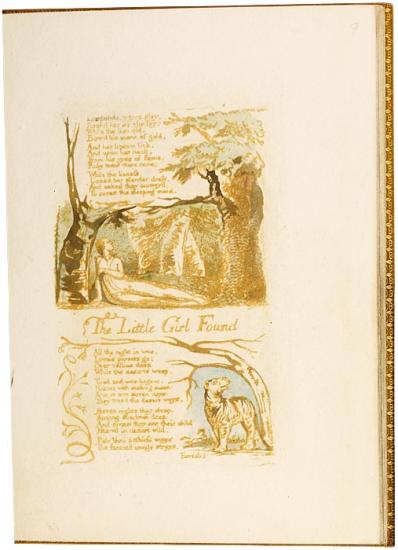 Leopards, tygers play,
Round her as she lay;
While the lion old,
Bow'd his mane of gold,
And her bosom lick,
And upon her neck,
From his eyes of flame,
Ruby tears there came;
While the lioness
Loos'd her slender dress,
And naked they convey'd
To caves the sleeping maid.
The Little Girl Found
All the night in woe,
Lyca's parents go:
Over vallies deep,
While the desarts weep.
Tired and woe-begone,
Hoarse with making moan:
Arm in arm seven days,
They trac'd the desart ways.
Seven nights they sleep,
Among shadows deep:
And dream they see their child
Starv'd in desart wild.
Pale thro pathless ways
The fancied image strays,
Famish'd